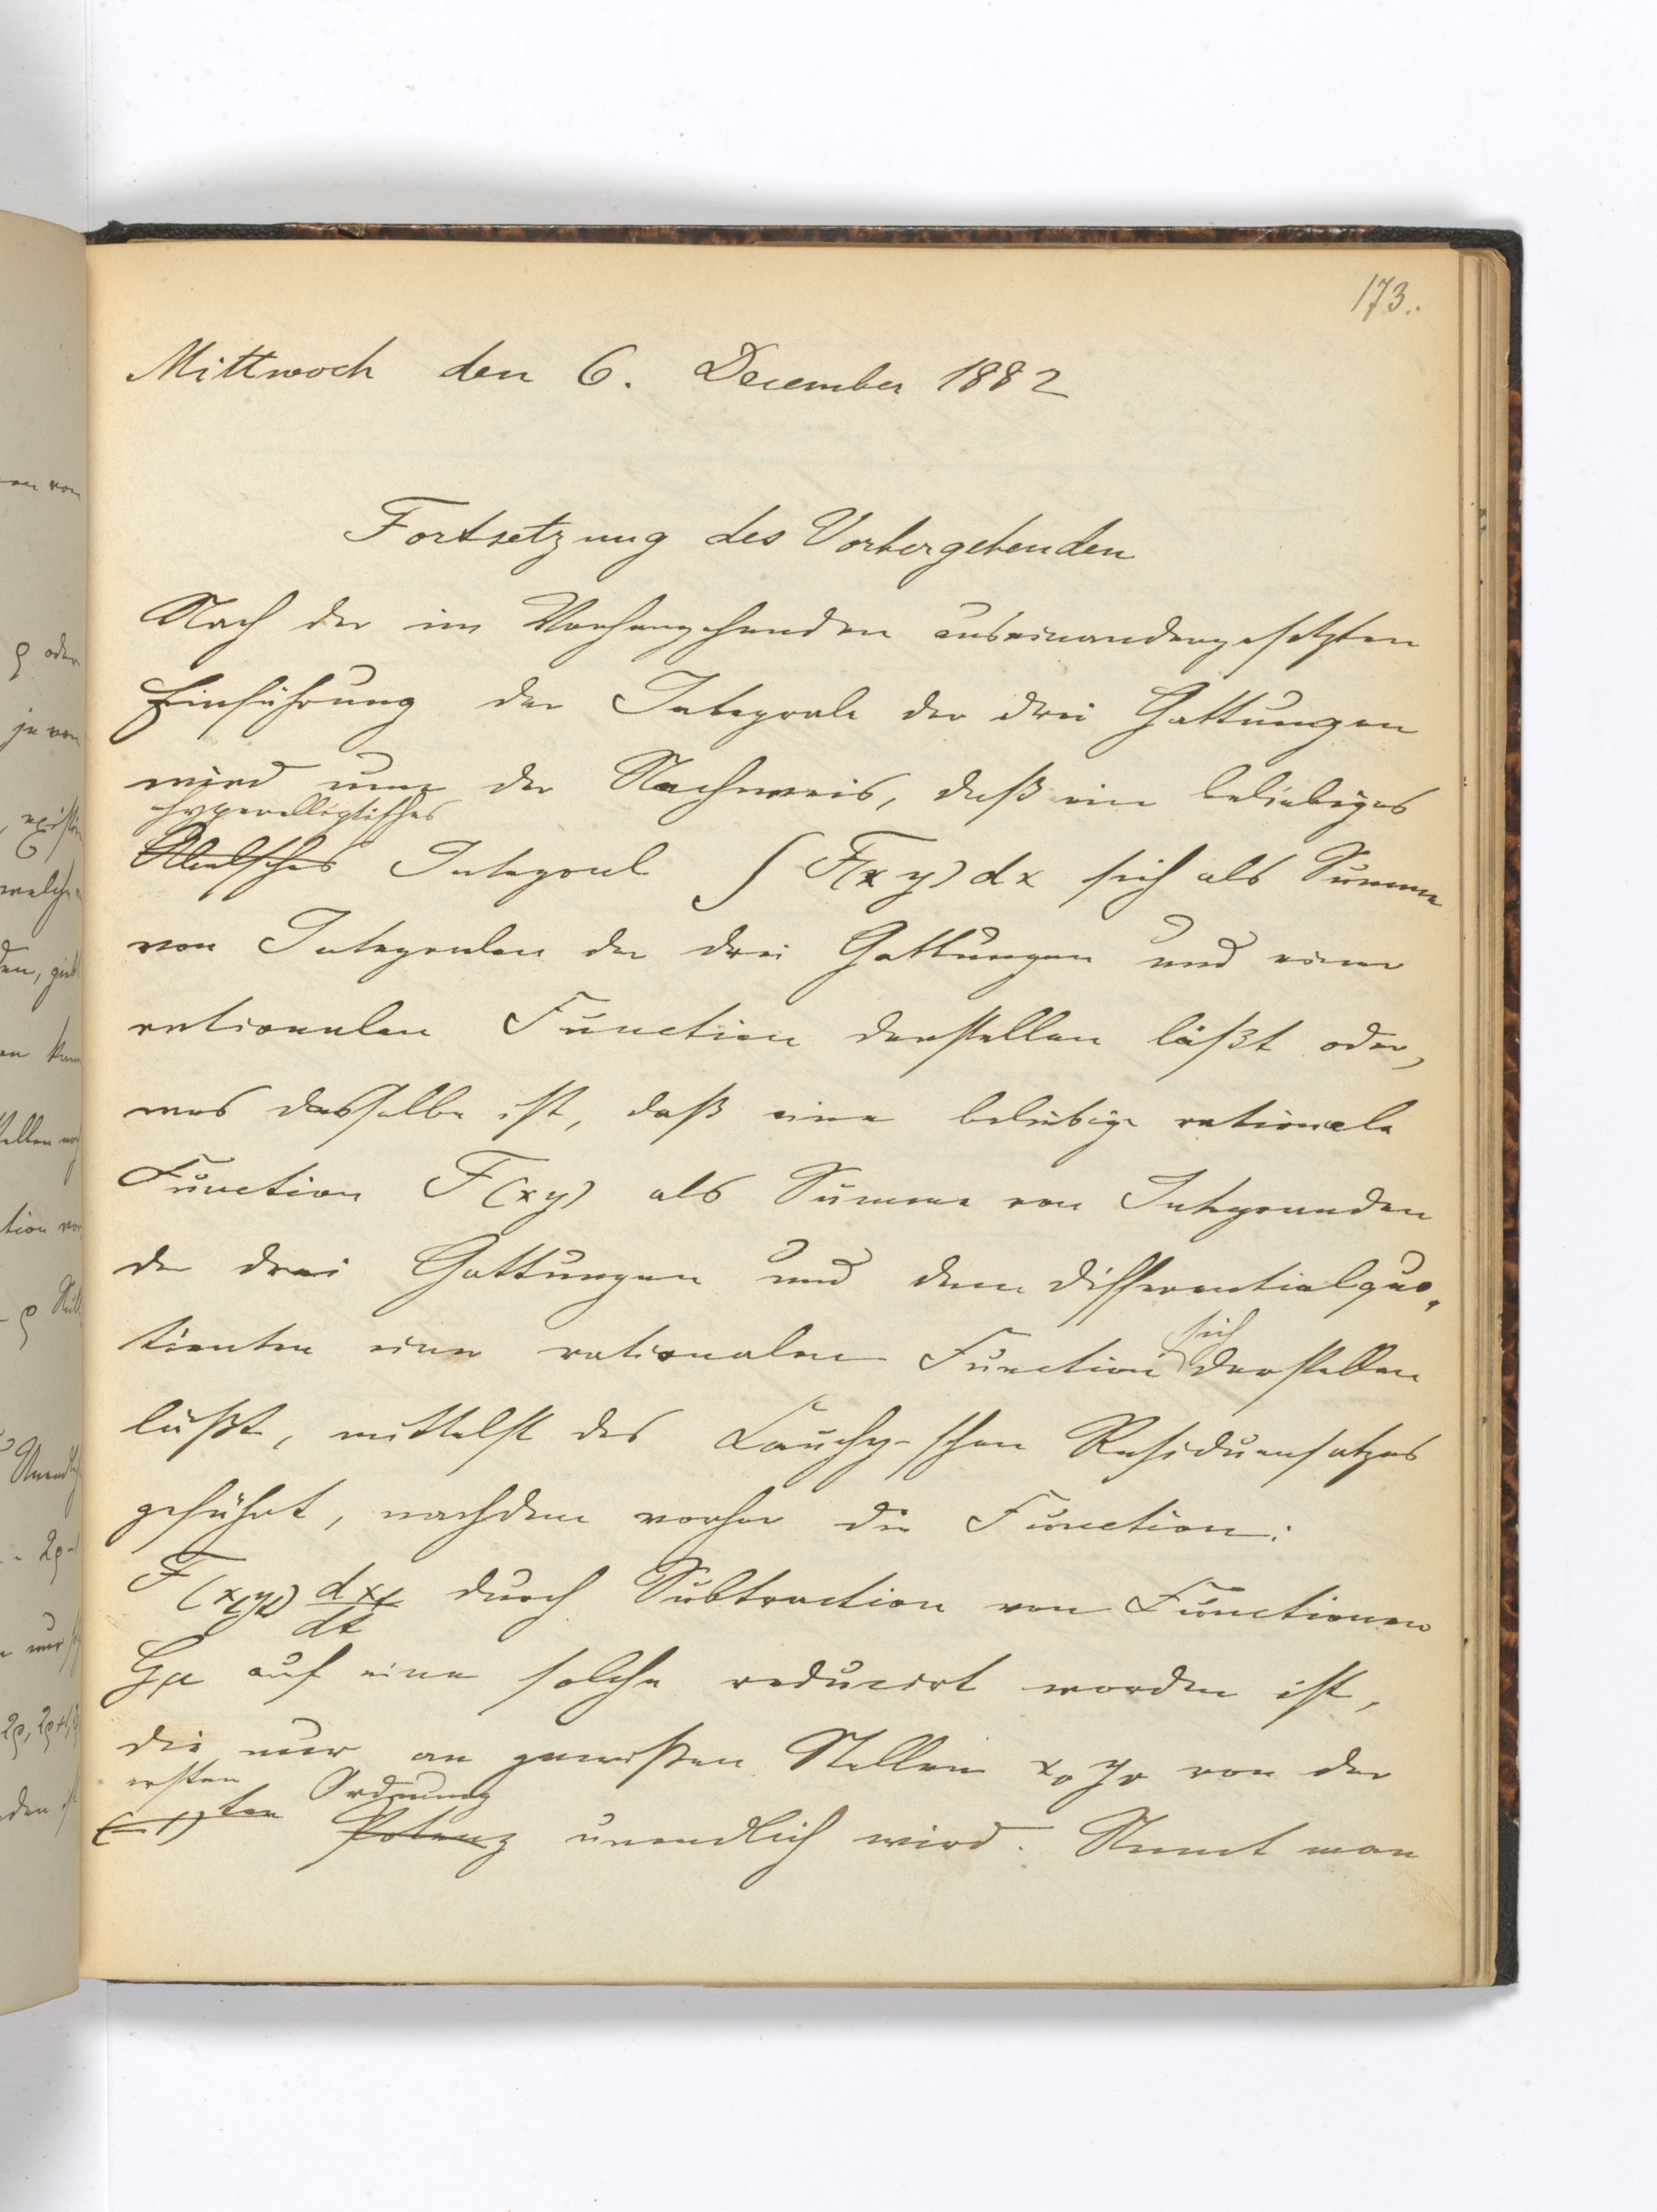 173.
Mittwoch den 6. December 1882
Fortsetzung des Vorhergehenden
Nach der im Vorhergehenden auseinandergesetzten
Einführung der Integrale der drei Gattungen
wird nun der Nachweis, daß ein beliebiges
hyperelliptisches
Abelsches Integral ∫ F(x y) dx sich als Summe
von Integralen der drei Gattungen und einer
rationalen Function darstellen läßt oder,
was dasselbe ist, daß eine beliebige rationale
Function F(xy) als Summe von Integranden
der drei Gattungen und dem Differentialquo-
tienten einer rationalen Function sich darstellen
läßt, mittelst des Cauchy-schen Residuensatzes
geführt, nachdem vorher die Function:
F(x_t y_t) dx_t/dt durch Subtraction von Functionen
G_μ auf eine solche reducirt worden ist,
die nur an gewissen Stellen x_0 y_0 von der
ersten Ordnung
(-1)ten Potenz unendlich wird. Nennt man
oder
je von
welche
tion